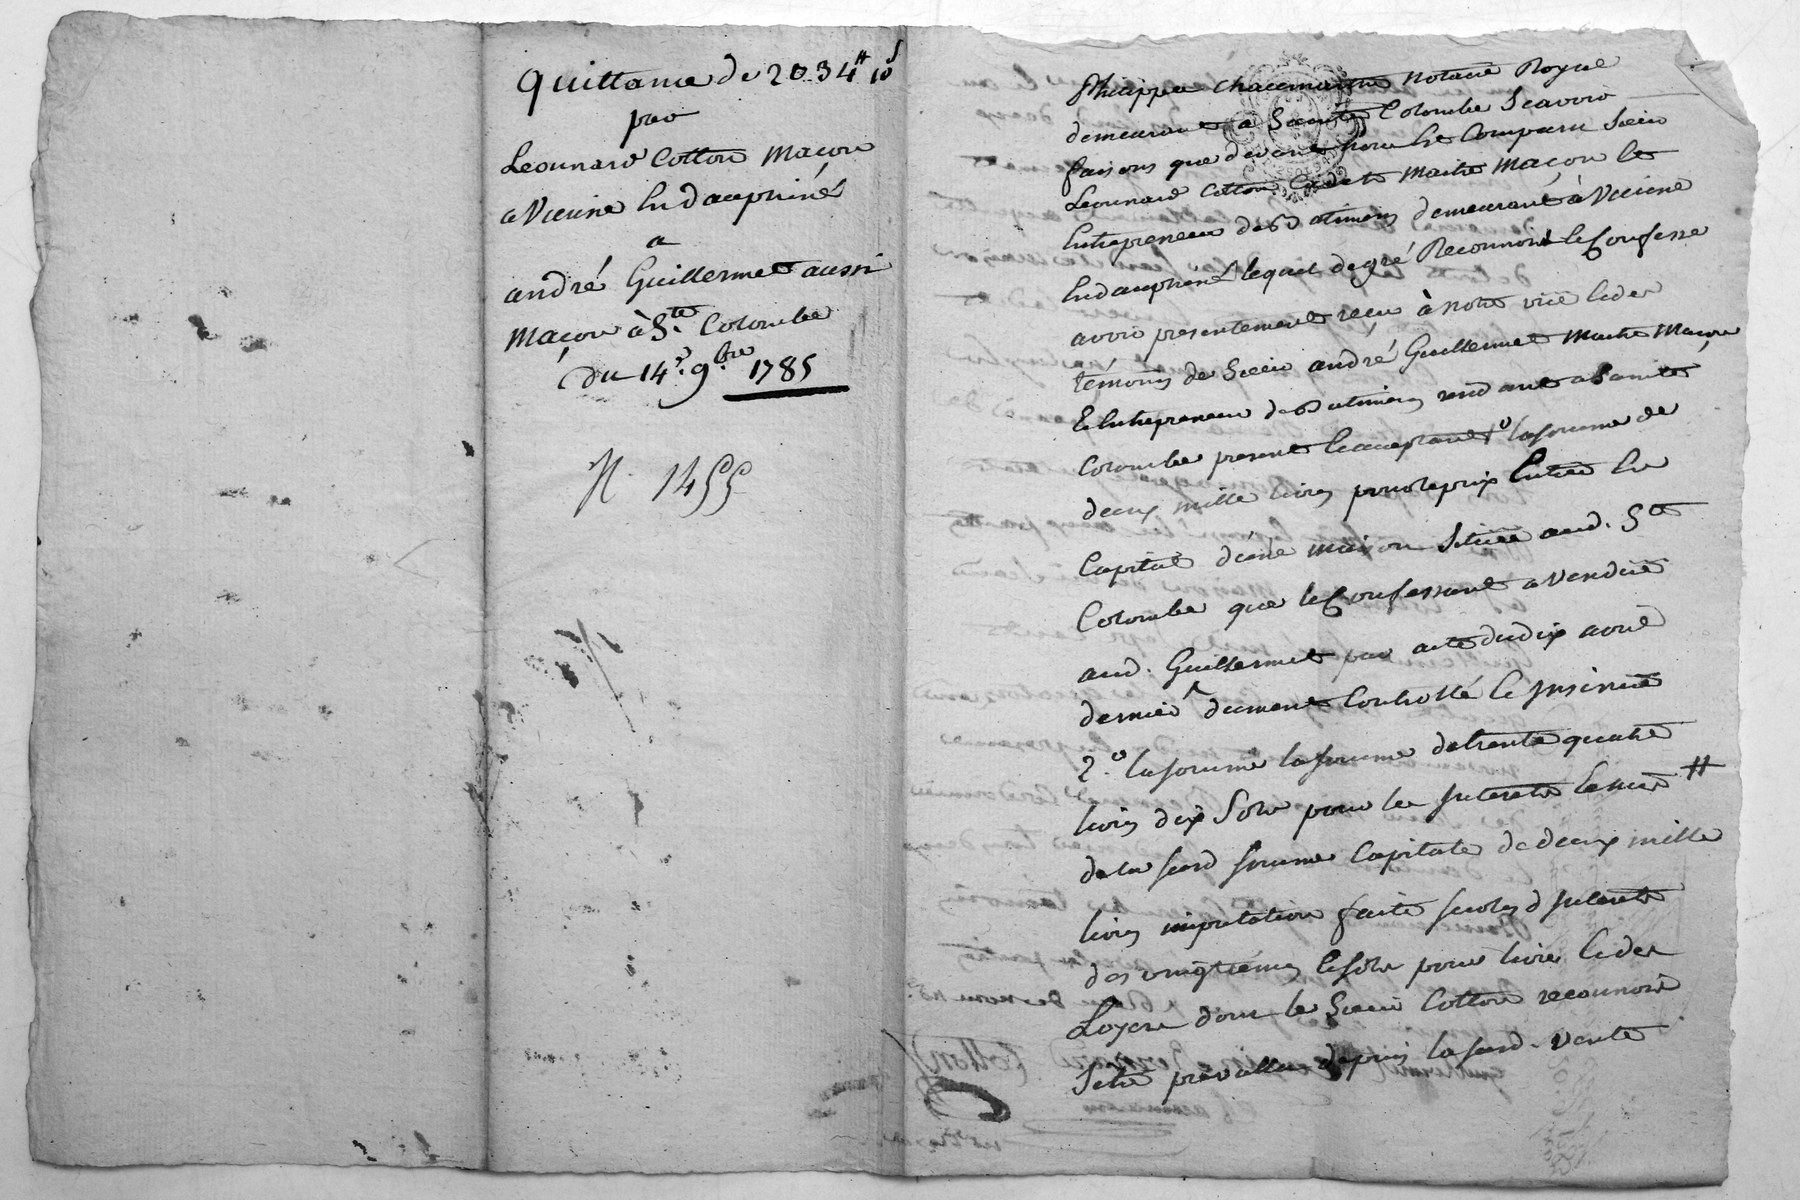 Quittance de 2034ᵗᵗ 10ˢ
par
Leonnard Cotton Macon
a Vienne En dauphiné
a
andré Guillermet aussi
Maçon à Sᵗᵉ Colombe
du 14ᵉ 9.ᵇʳᵉ 1785
N 1455
Philippe Chacemartin notaire Royal
demeurant a Sainte Colombe Scavoir
faisons que devant nous Est Comparu Sieur
Leonnard Cotton Cadet Maitre Maçon Et
Entrepreneur de Batimens demeurant à Vienne
En dauphiné lequel de gré Reconnoit & Confesse
avoir presentement recu à notre vüe & des
témoins de Sieur andré Guillermet Maitre Maçon
& Entrepreneur de Batimens residant a Sainte
Colombe present & acceptant 1.º la somme de
deux mille livres pour le prix Entier En
Capital d'une maison Située aud. Sᵗᵉ
Colombe que le Confessant a Vendüe
aud. Guillermet par acte du dix avril
dernier dument Controllé & Insinué
2.º la somme la somme de trente quatre
livres dix Sols pour les Interets
de la susd somme Capitale de deux mille
livres imputation faite sur les d Interets
des vingtiemes & sols pour livre & des
Loyers dont le Sieur Cotton reconnoit
Setre prevallu depuis la susd. Vente